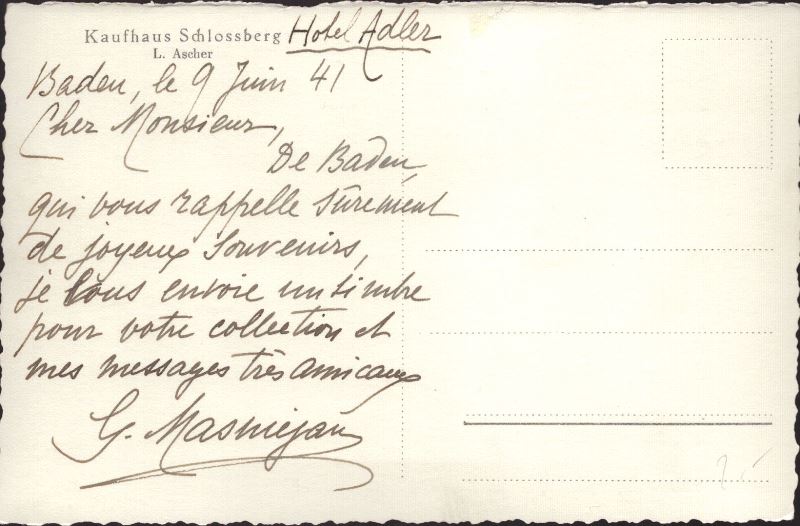 Kaufhaus Schlossberg Hotel Adler
L. Ascher
Baden, le 9 Juin 41
Cher Monsieur,
De Baden,
qui vous rappelle sûrement
de joyeux souvenirs,
je vous envoie un timbre
pour votre collection et
mes messages très amicaux
G.